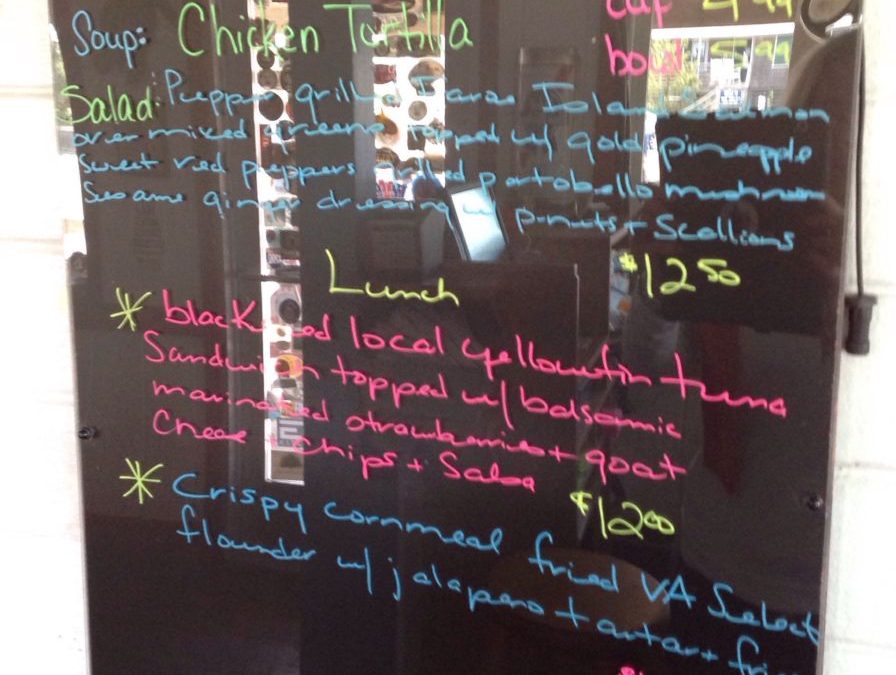 Soup: Chicken Tortilla cup 4.99
bowl 5.99
Salad: Pepper grilled Faroe Island Salmon
over mixed greens topped w/ gold pineapple
sweet red peppers grilled portobello mushroom
Sesame ginger dressing w p-nuts + Scallions
$12 50
Lunch
* blackened local yellowfin tuna
Sandwich topped w/ balsamic
marinated strawberries + goat
Cheese + Chips + Salsa
$12 00
* Crispy cornmeal fried VA Select
flounder w/ jalapeno tartar +